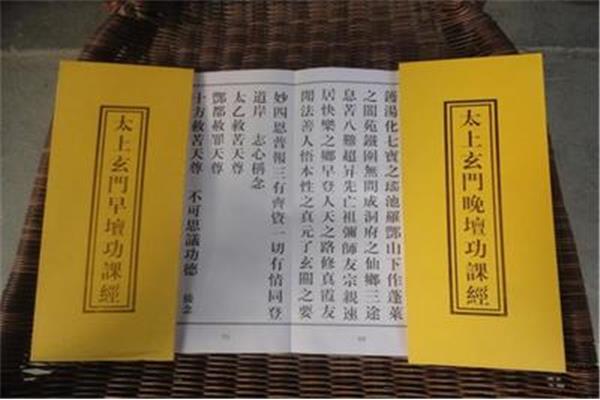 太上玄門晚壇功課經
鑊湯化七寶之瑤池羅酆山下作蓬萊
之閬苑鐵圍無間成洞府之仙鄉三途
息苦八難超昇先亡祖彌師友宗親速
居快樂之鄉早登人天之路修真霞友
聞法善人悟本性之真元了玄關之要
妙四恩普報三有齊資一切有情同登
道岸 志心稱念
太乙救苦天尊
酆都赦罪天尊
十方救苦天尊 不可思議功德
太上玄門早壇功課經